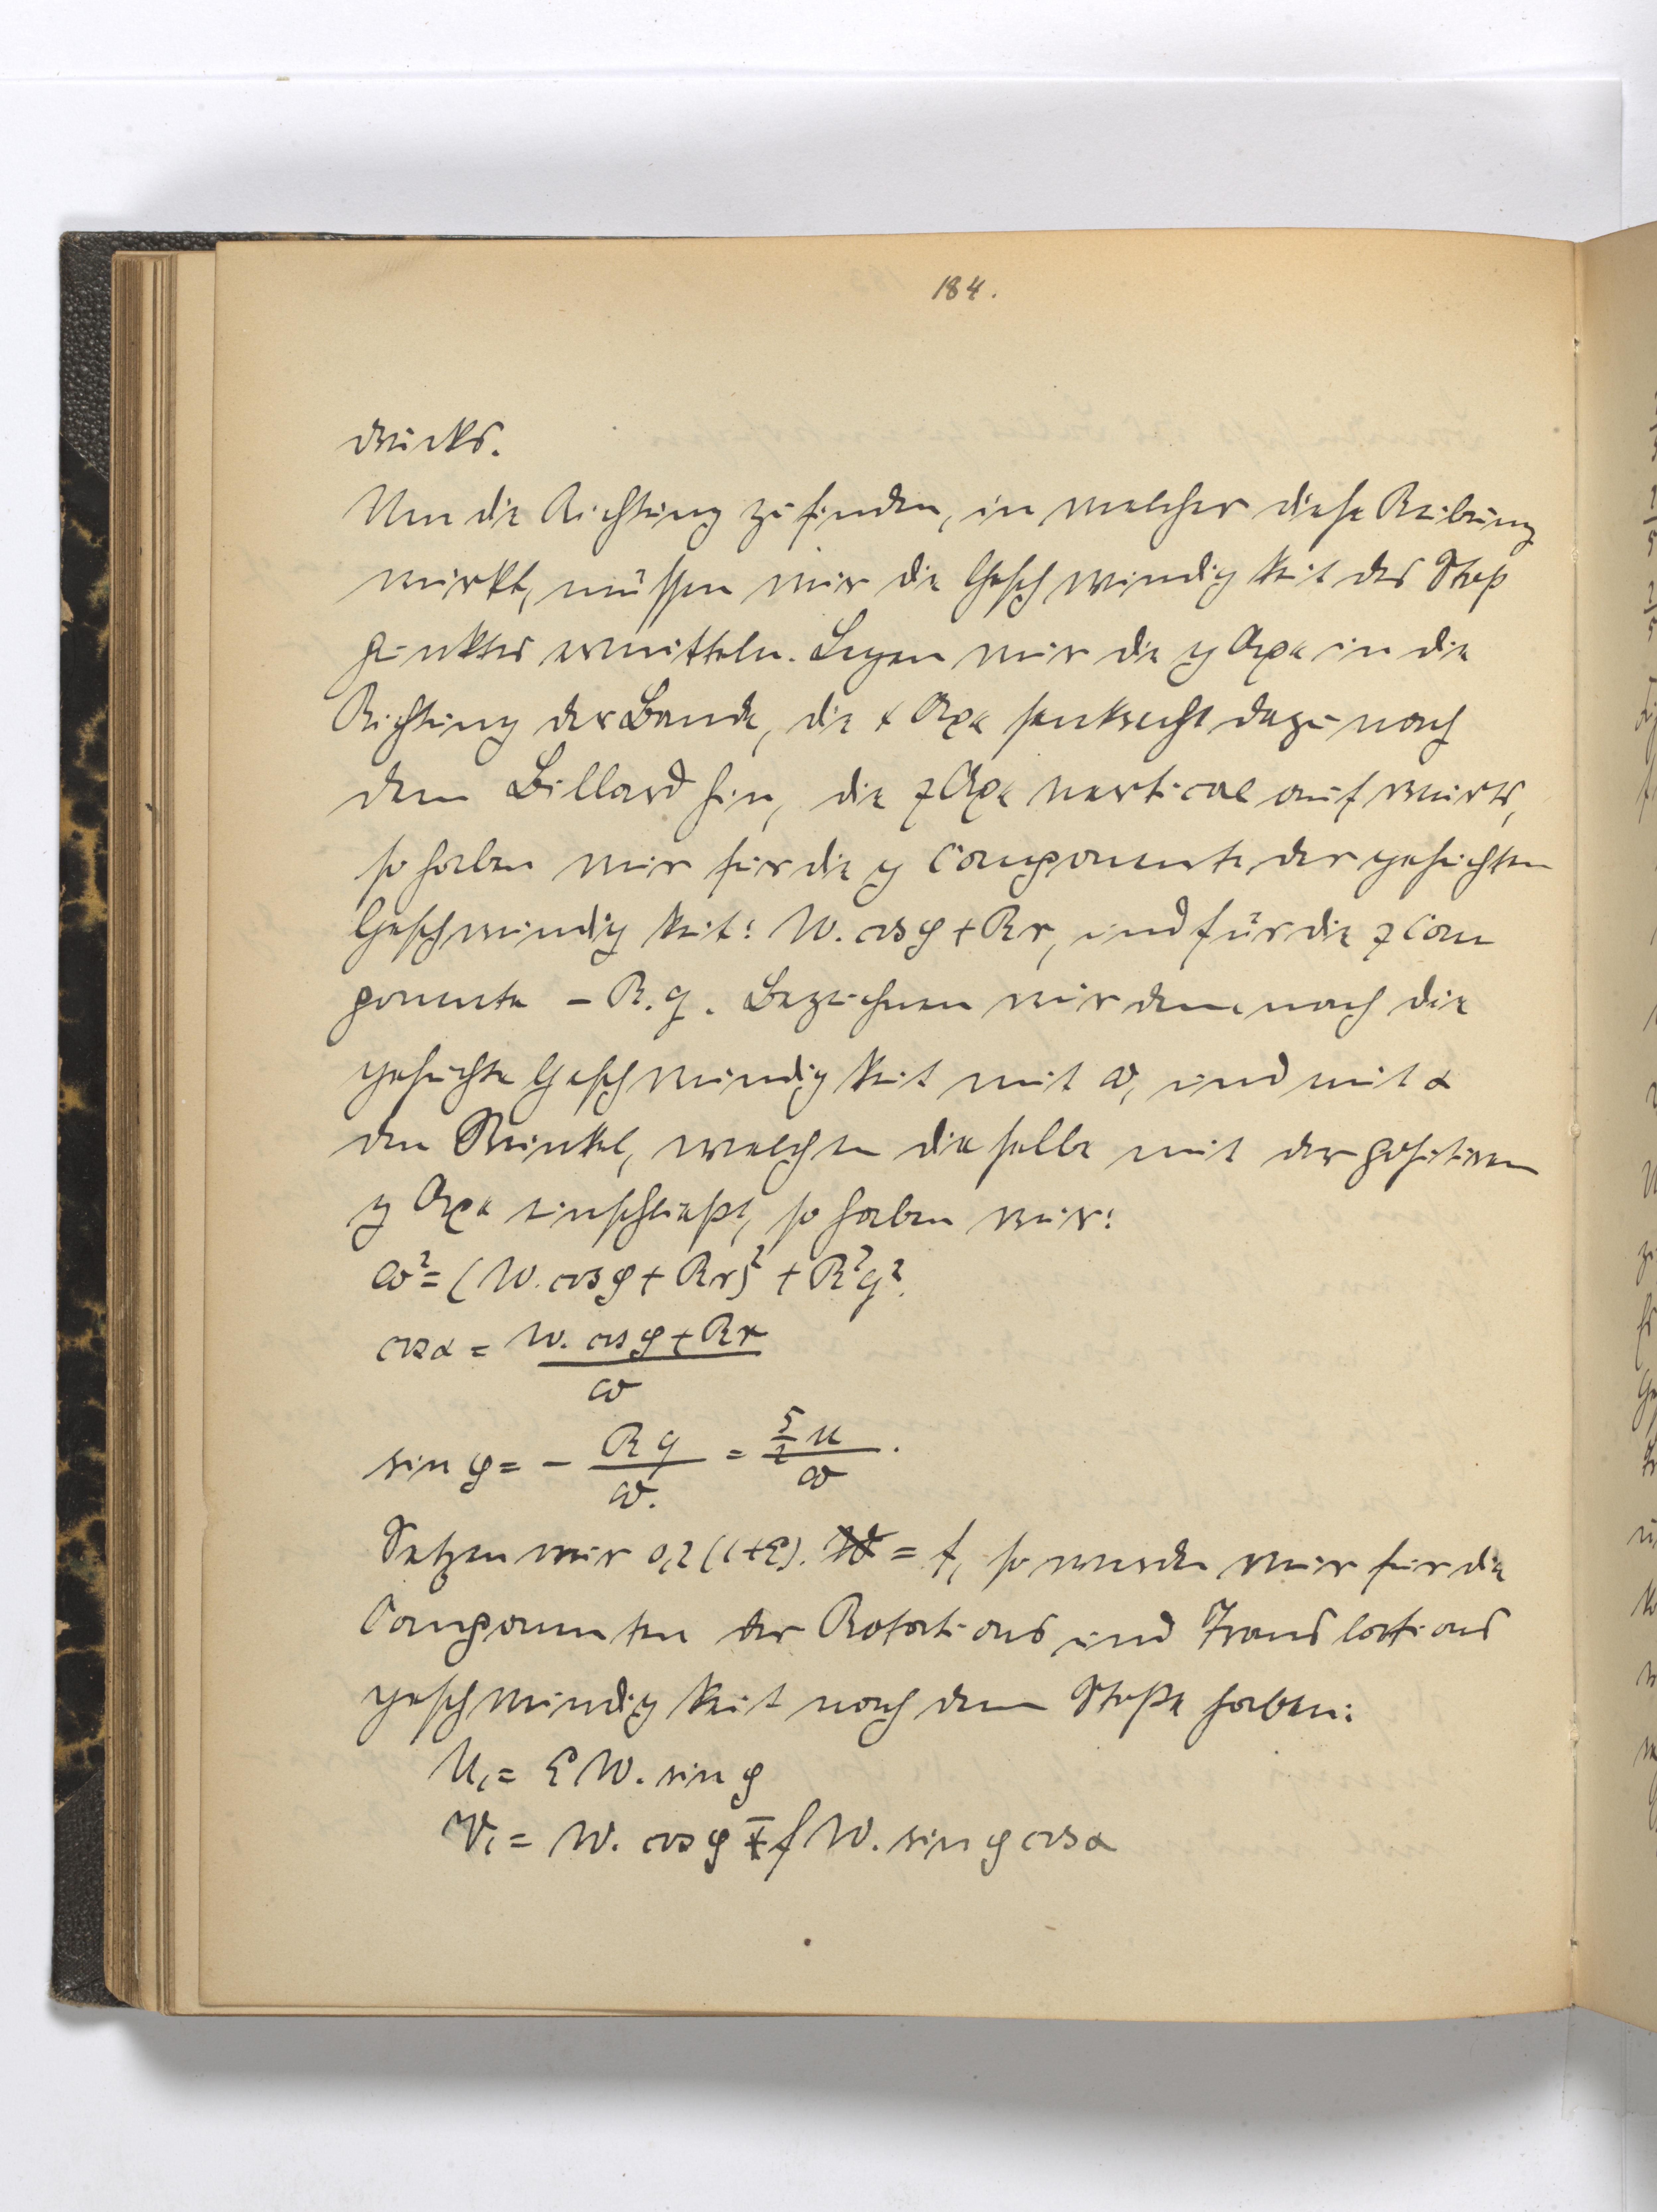 184.
drucks.
Um die Richtung zu finden, in welcher diese Reibung
wirkt, müssen wir die Geschwindigkeit des Stoß
punktes ermitteln. Legen wir die y Axe in die
Richtung der Bande, die x Axe senkrecht dazu nach
dem Billard hin, die z Axe vertical aufwärts,
so haben wir für die y Componente der gesuchten
Geschwindigkeit: W. cos φ + Rr, und für die z Com
ponente – R.q. Bezeichnen wir demnach die
gesuchte Geschwindigkeit mit ω, und mit α
den Winkel, welchen dieselbe mit der positiven
y Axe einschließt, so haben wir:
ω² = (W. cos φ + Rr)² + R²q².
cos α = W. cos φ + Rr / ω
sin φ = – Rq / ω. = 5/2 u / ω.
Setzen wir 0,2 (1+ε). W = f, so werden wir für die
Componenten der Rotations und Translations
geschwindigkeit nach dem Stoße haben:
U₁ = ε W. sin φ
V₁ = W. cos φ ∓ f W. sin φ cos α